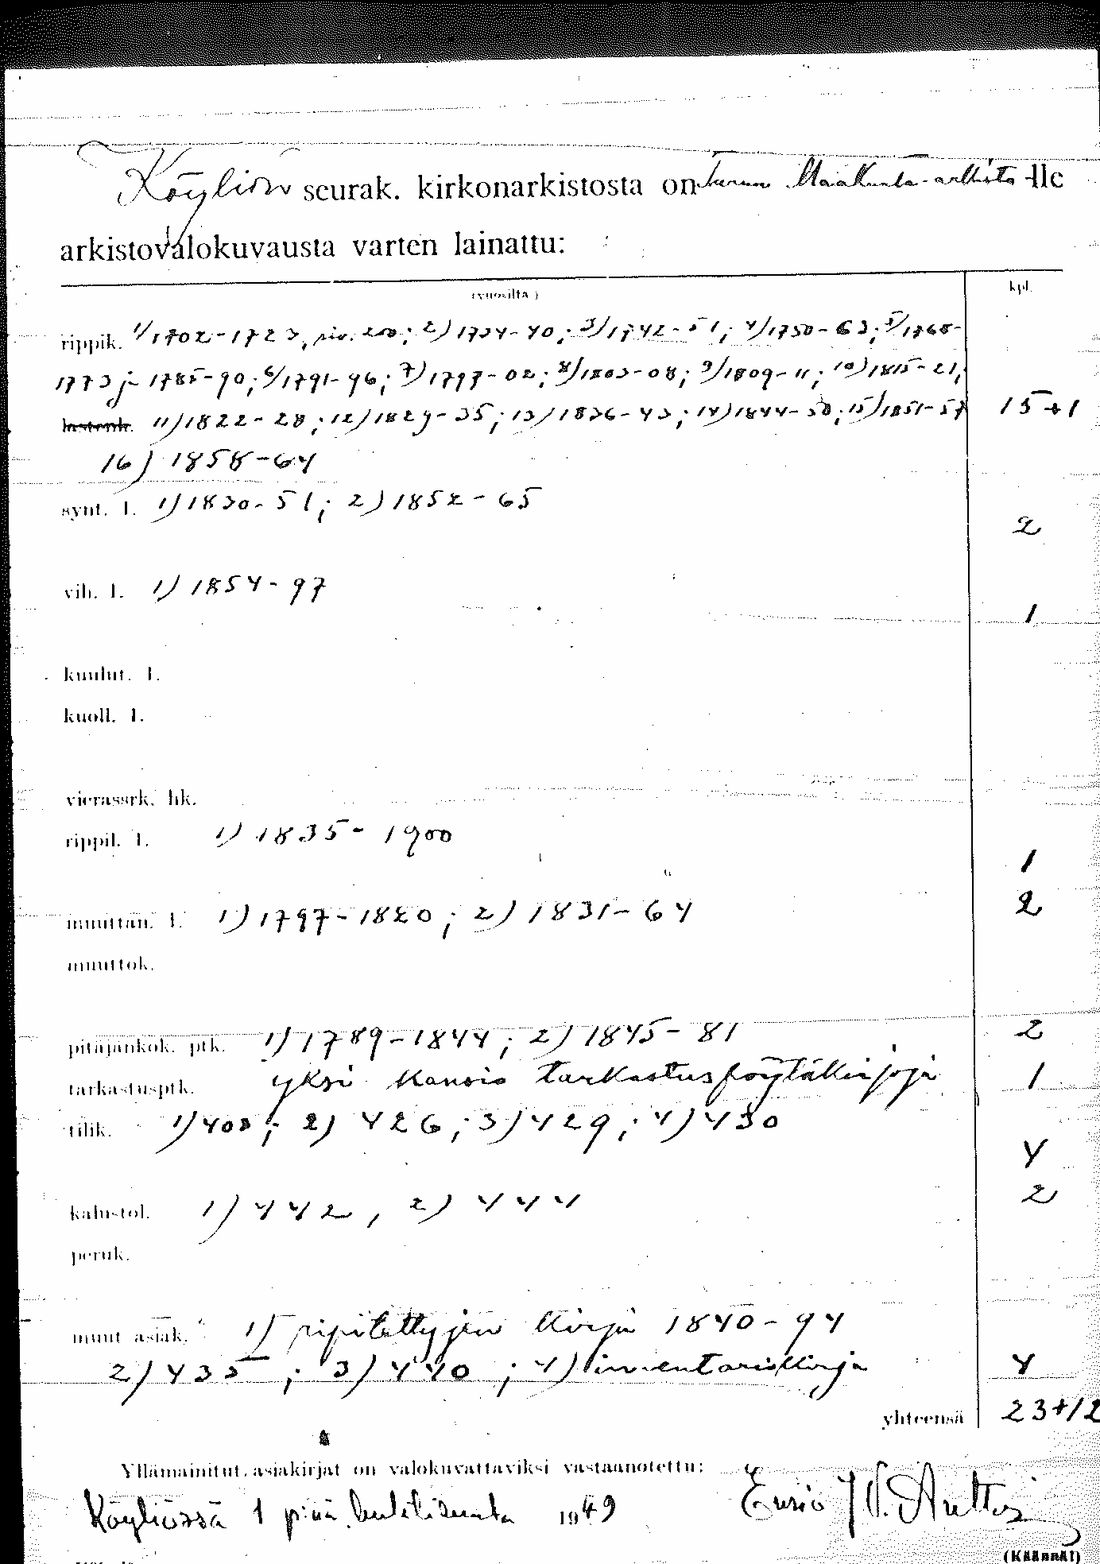 Köyliön seurak. kirkonarkistosta on Turun Maakunta-arkisto -lle
arkistovalokuvausta varten lainattu:
(vuosilta) kpl.
rippik. 1/1702-1723, siv. 200; 2) 1734-40; 3) 1742-51; 4) 1750-63; 5) 1768-
1773 ja 1785-90; 6) 1791-96; 7) 1797-02; 8) 1803-08; 9) 1809-11; 10) 1815-21;
lastenk. 11) 1822-28; 12) 1829-35; 13) 1836-43; 14) 1844-50; 15) 1851-57 15+1
16) 1858-64
synt. l. 1) 1830-51; 2) 1852-65 2
vih. l. 1) 1854-97 1
kuulut. l.
kuoll. l.
vierassrk. hk.
rippil. l. 1) 1835-1900 1
muuttan. l. 1) 1797-1820; 2) 1831-64 2
muuttok.
pitäjänkok. ptk. 1) 1789-1844; 2) 1845-81 2
tarkastusptk. yksi kansio tarkastuspöytäkirjoja 1
tilik. 1) 408; 2) 426; 3) 429; 4) 430 4
kalustol. 1) 442, 2) 444 2
peruk.
muut asiak. 1) ripitettyjen kirja 1840-94
2) 435; 3) 440; 4) inventariokirja 4
yhteensä 23+12
Yllämainitut asiakirjat on valokuvattaviksi vastaanotettu:
Köyliössä 1 p:nä huhtikuuta 1949
(Käännä!)